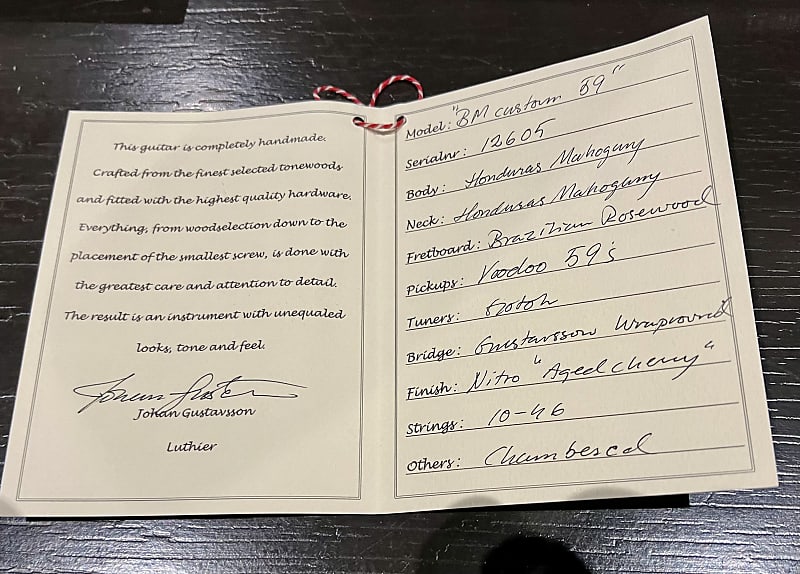 This guitar is completely handmade.
Crafted from the finest selected tonewoods
and fitted with the highest quality hardware.
Everything, from woodselection down to the
placement of the smallest screw, is done with
the greatest care and attention to detail.
The result is an instrument with unequaled
looks, tone and feel.
Johan Gustavsson
Luthier
Model: "BM custom 59"
Serialnr: 12605
Body: Honduras Mahogany
Neck: Honduras Mahogany
Fretboard: Brazilian Rosewood
Pickups: Voodoo 59's
Tuners: Gotoh
Bridge: Gustavsson Wraparound
Finish: Nitro "Aged cherry"
Strings: 10-46
Others: Chambered